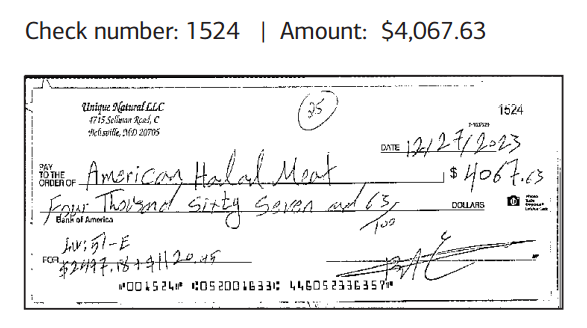 Check number: 1524 | Amount: $4,067.63
Unique Natural LLC
4715 Sellman Road, C
Beltsville, MD 20705
25
1524
DATE 12/27/2023
PAY TO THE ORDER OF American Halal Meat $4067.63
Four Thousand Sixty Seven and 63/100 DOLLARS
Bank of America
Inv: 51-E
FOR $2497.18+$1120.45
⑈001524⑈ ⑆052001633⑆ 446052336357⑈